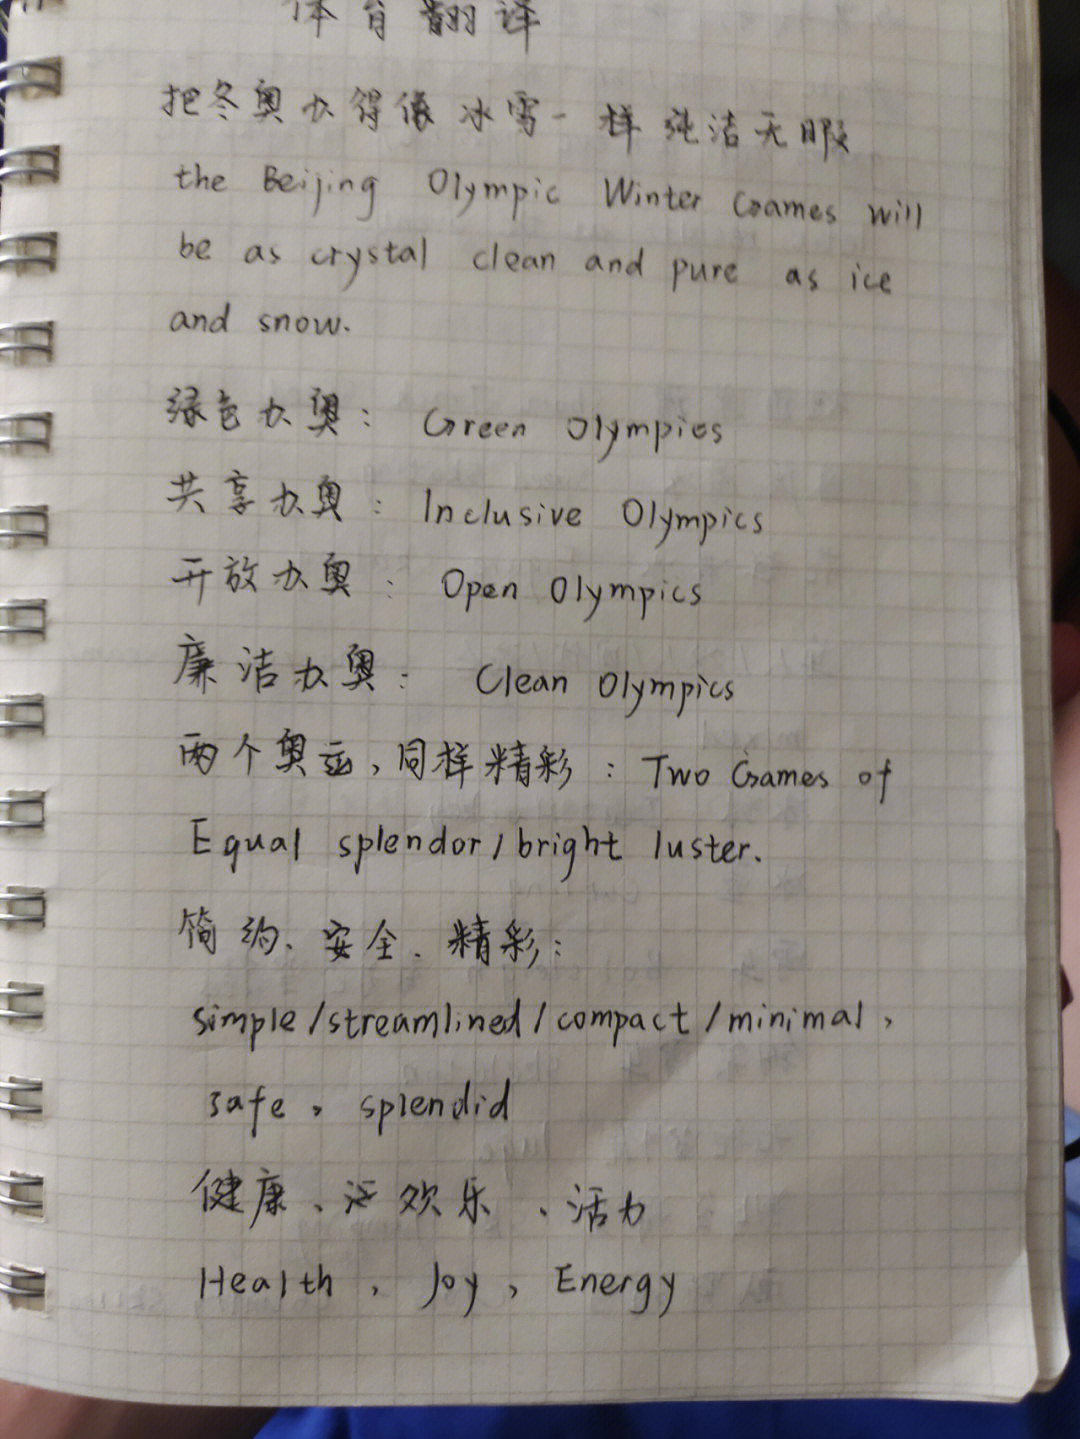 体育翻译
把冬奥办得像冰雪一样纯洁无暇
the Beijing Olympic Winter Games will
be as crystal clean and pure as ice
and snow.
绿色办奥： Green Olympics
共享办奥： Inclusive Olympics
开放办奥： Open Olympics
廉洁办奥： Clean Olympics
两个奥运，同样精彩：Two Games of
Equal splendor/bright luster.
简约、安全、精彩：
simple/streamlined/compact/minimal,
safe, splendid
健康、欢乐、活力
Health, Joy, Energy